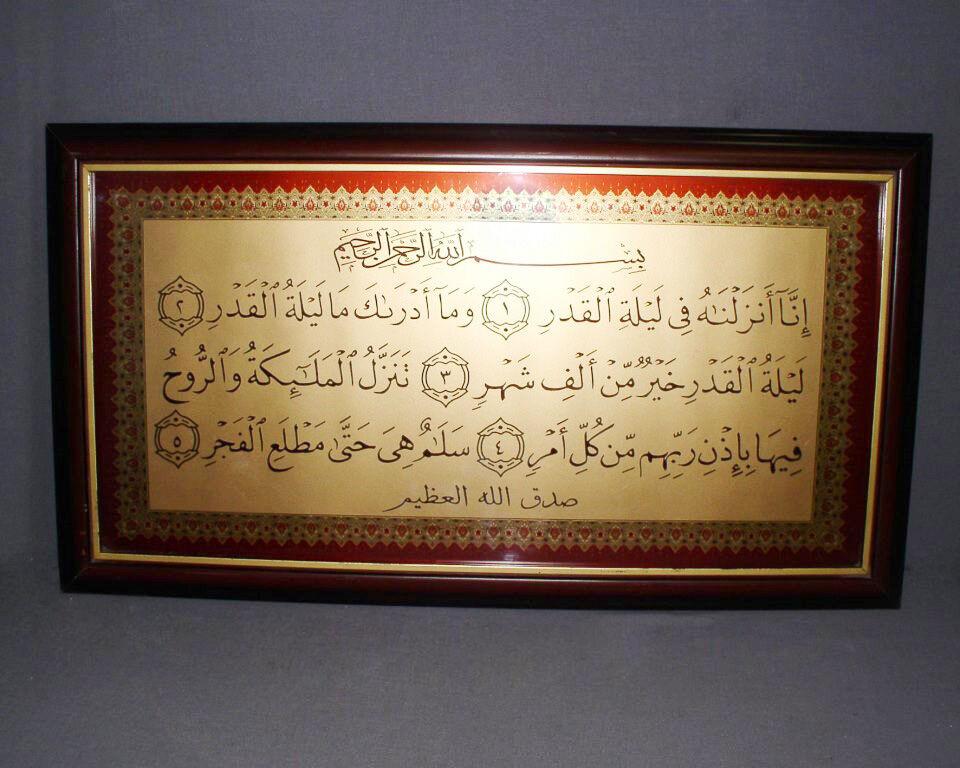 بِسْمِ ٱللَّهِ ٱلرَّحْمَٰنِ ٱلرَّحِيمِ
إِنَّآ أَنزَلْنَٰهُ فِى لَيْلَةِ ٱلْقَدْرِ ١ وَمَآ أَدْرَىٰكَ مَا لَيْلَةُ ٱلْقَدْرِ ٢
لَيْلَةُ ٱلْقَدْرِ خَيْرٌ مِّنْ أَلْفِ شَهْرٍ ٣ تَنَزَّلُ ٱلْمَلَٰٓئِكَةُ وَٱلرُّوحُ
فِيهَا بِإِذْنِ رَبِّهِم مِّن كُلِّ أَمْرٍ ٤ سَلَٰمٌ هِىَ حَتَّىٰ مَطْلَعِ ٱلْفَجْرِ ٥
صدق الله العظيم